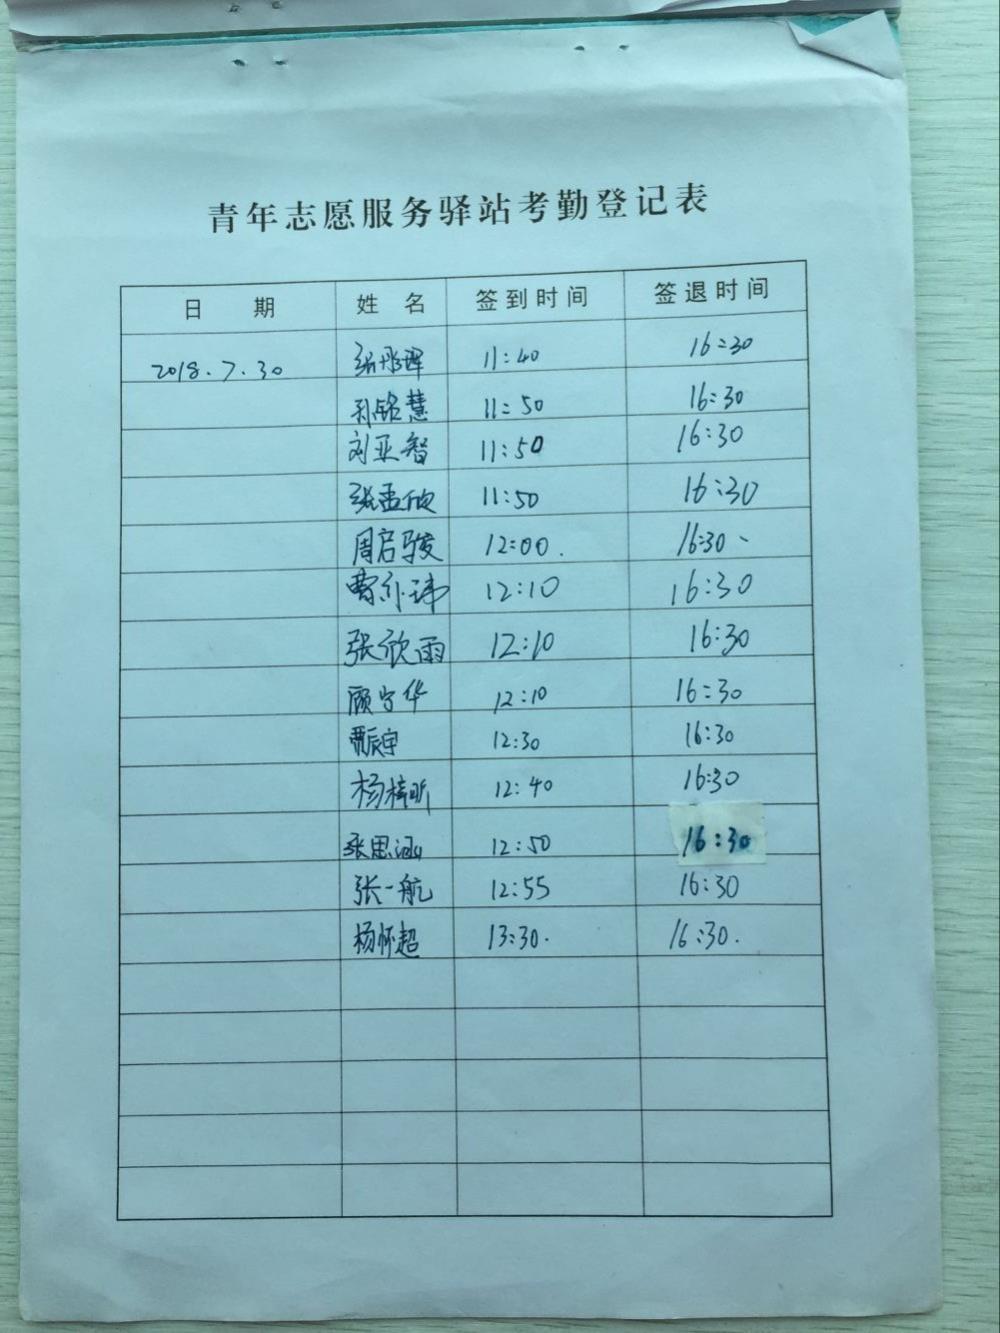 青年志愿服务驿站考勤登记表
日期 姓名 签到时间 签退时间
2018.7.30 11:40 16:30
孙铭慧 11:50 16:30
刘亚智 11:50 16:30
张孟欣 11:50 16:30
周启骏 12:00. 16:30
12:10 16:30
张欣雨 12:10 16:30
顾守华 12:10 16:30
贾辰宇 12:30 16:30
杨梓昕 12:40 16:30
张思涵 12:50 16:30
张一航 12:55 16:30
杨怀超 13:30. 16:30.